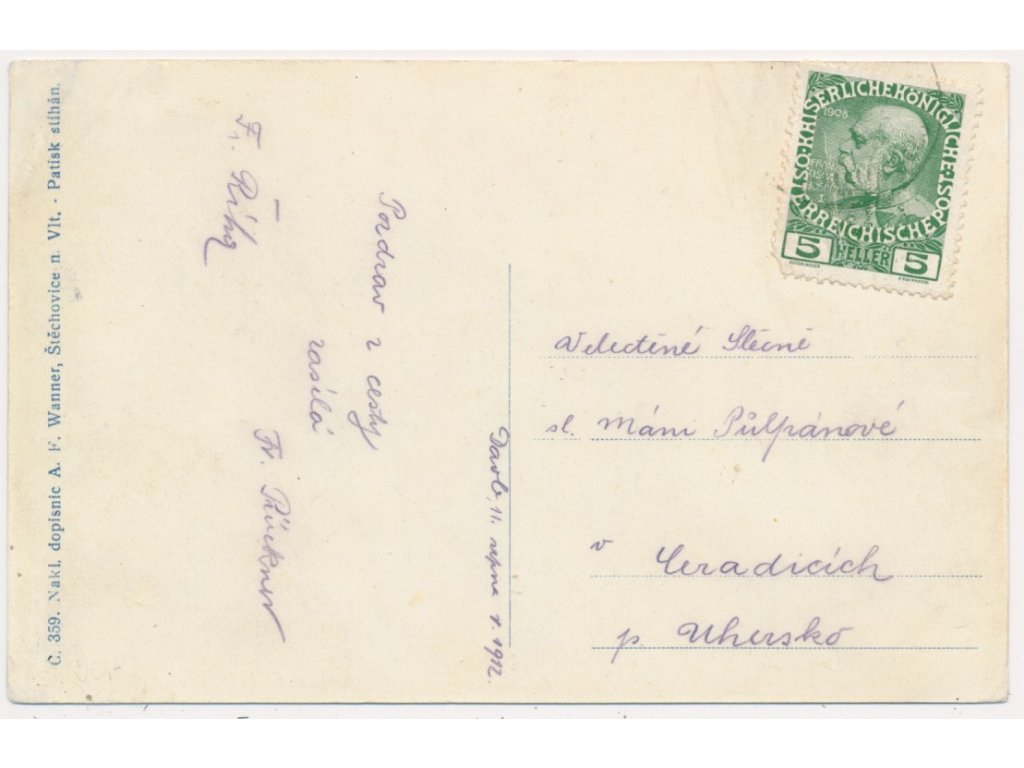 C. 359. Nakl. dopisnic A. F. Wanner, Štěchovice n. Vlt. - Patisk stíhán.
Fr. Říha
Pozdrav z cesty
zasílá
Fr.
Davle, 11. srpna r. 1912.
KAISERLICHE KÖNIGLICHE ÖSTERREICHISCHE POST
1908
5 HELLER 5
Velectěné Slečně
sl. Máni Půlpánové
v Ceradicích
p. Uhersko